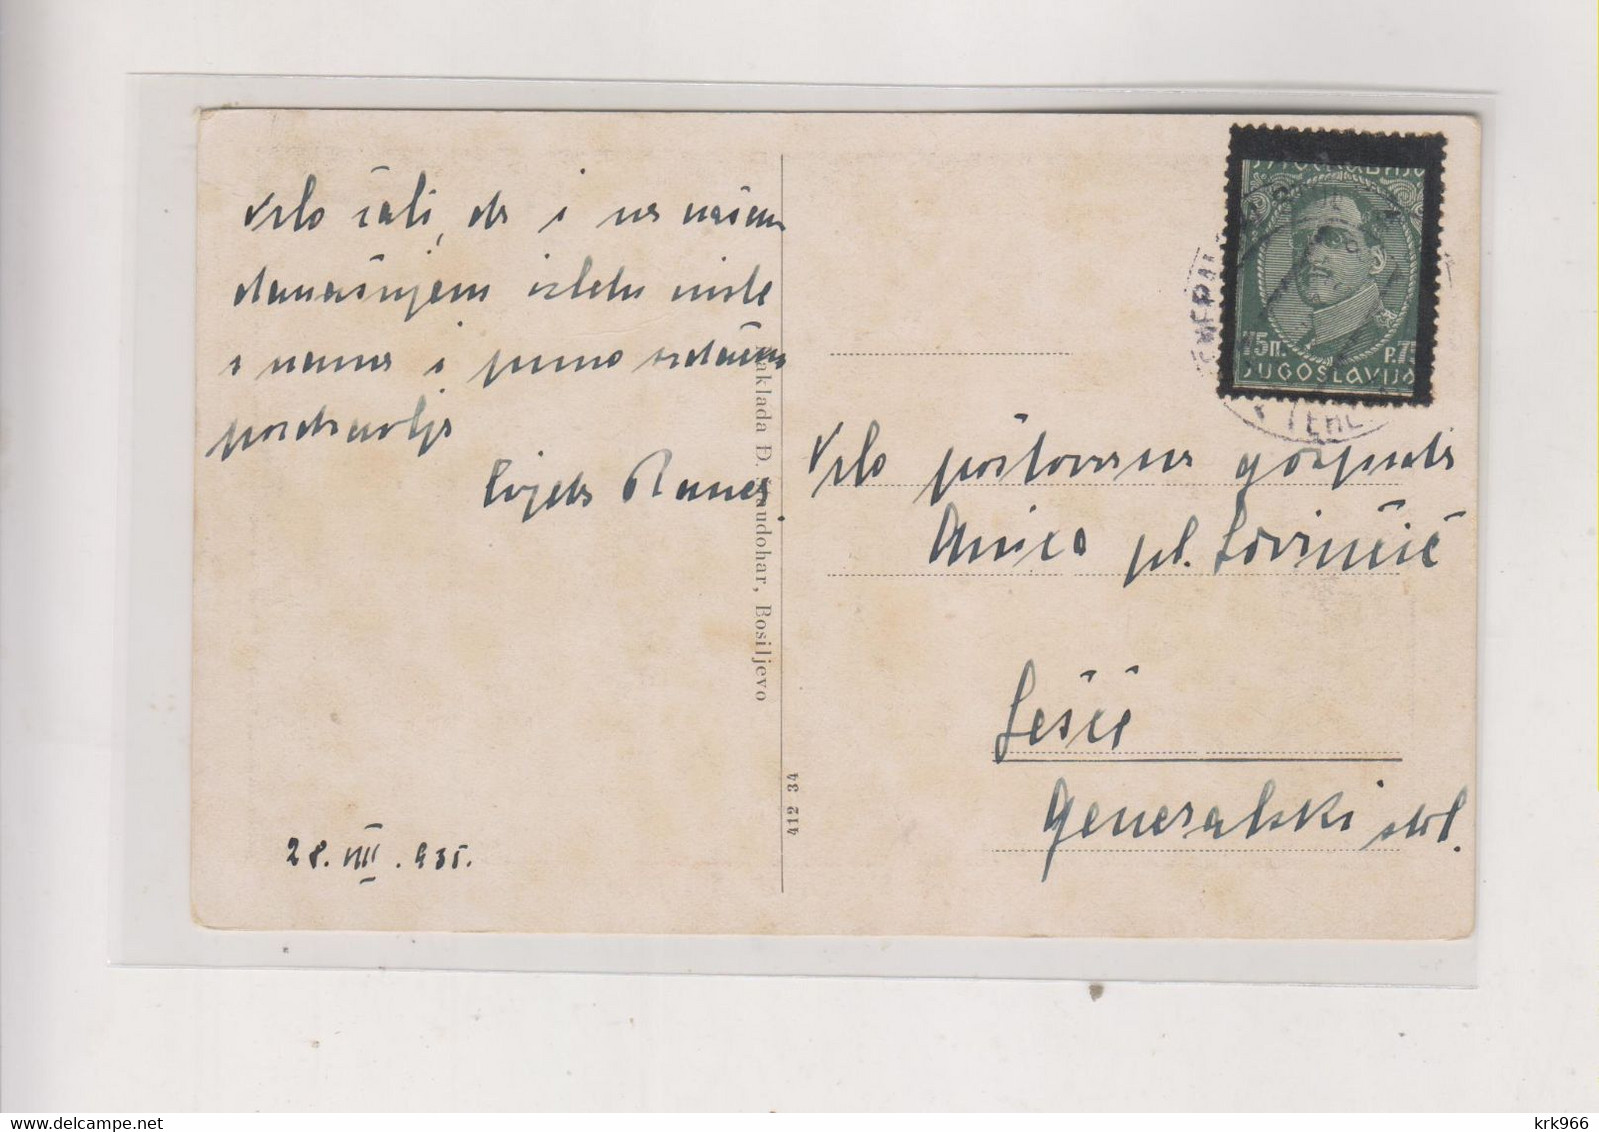 Vrlo žali, da i na našem
današnjem izletu niste
s nama i puno srdačno
pozdravlja
Cvjeta
28. VIII. 935.
Naklada Đ. Šaudohar, Bosiljevo
412 34
JUGOSLAVIJA
75П. P.75
JUGOSLAVIJA
Vrlo poštovana gospođa
Anica pl. Lovinčić
Lešće
Generalski stol.
krk966